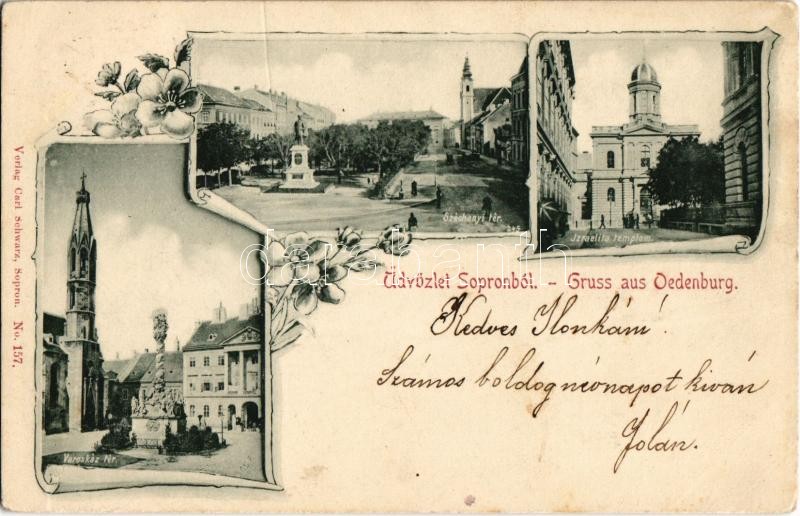 Széchenyi tér.
Izraelita templom.
Városház tér.
Üdvözlet Sopronból. - Gruss aus Oedenburg.
Kedves Ilonkám!
Számos boldog névnapot kiván
Jolán.
Verlag Carl Schwarz, Sopron. No. 157.
darabanth